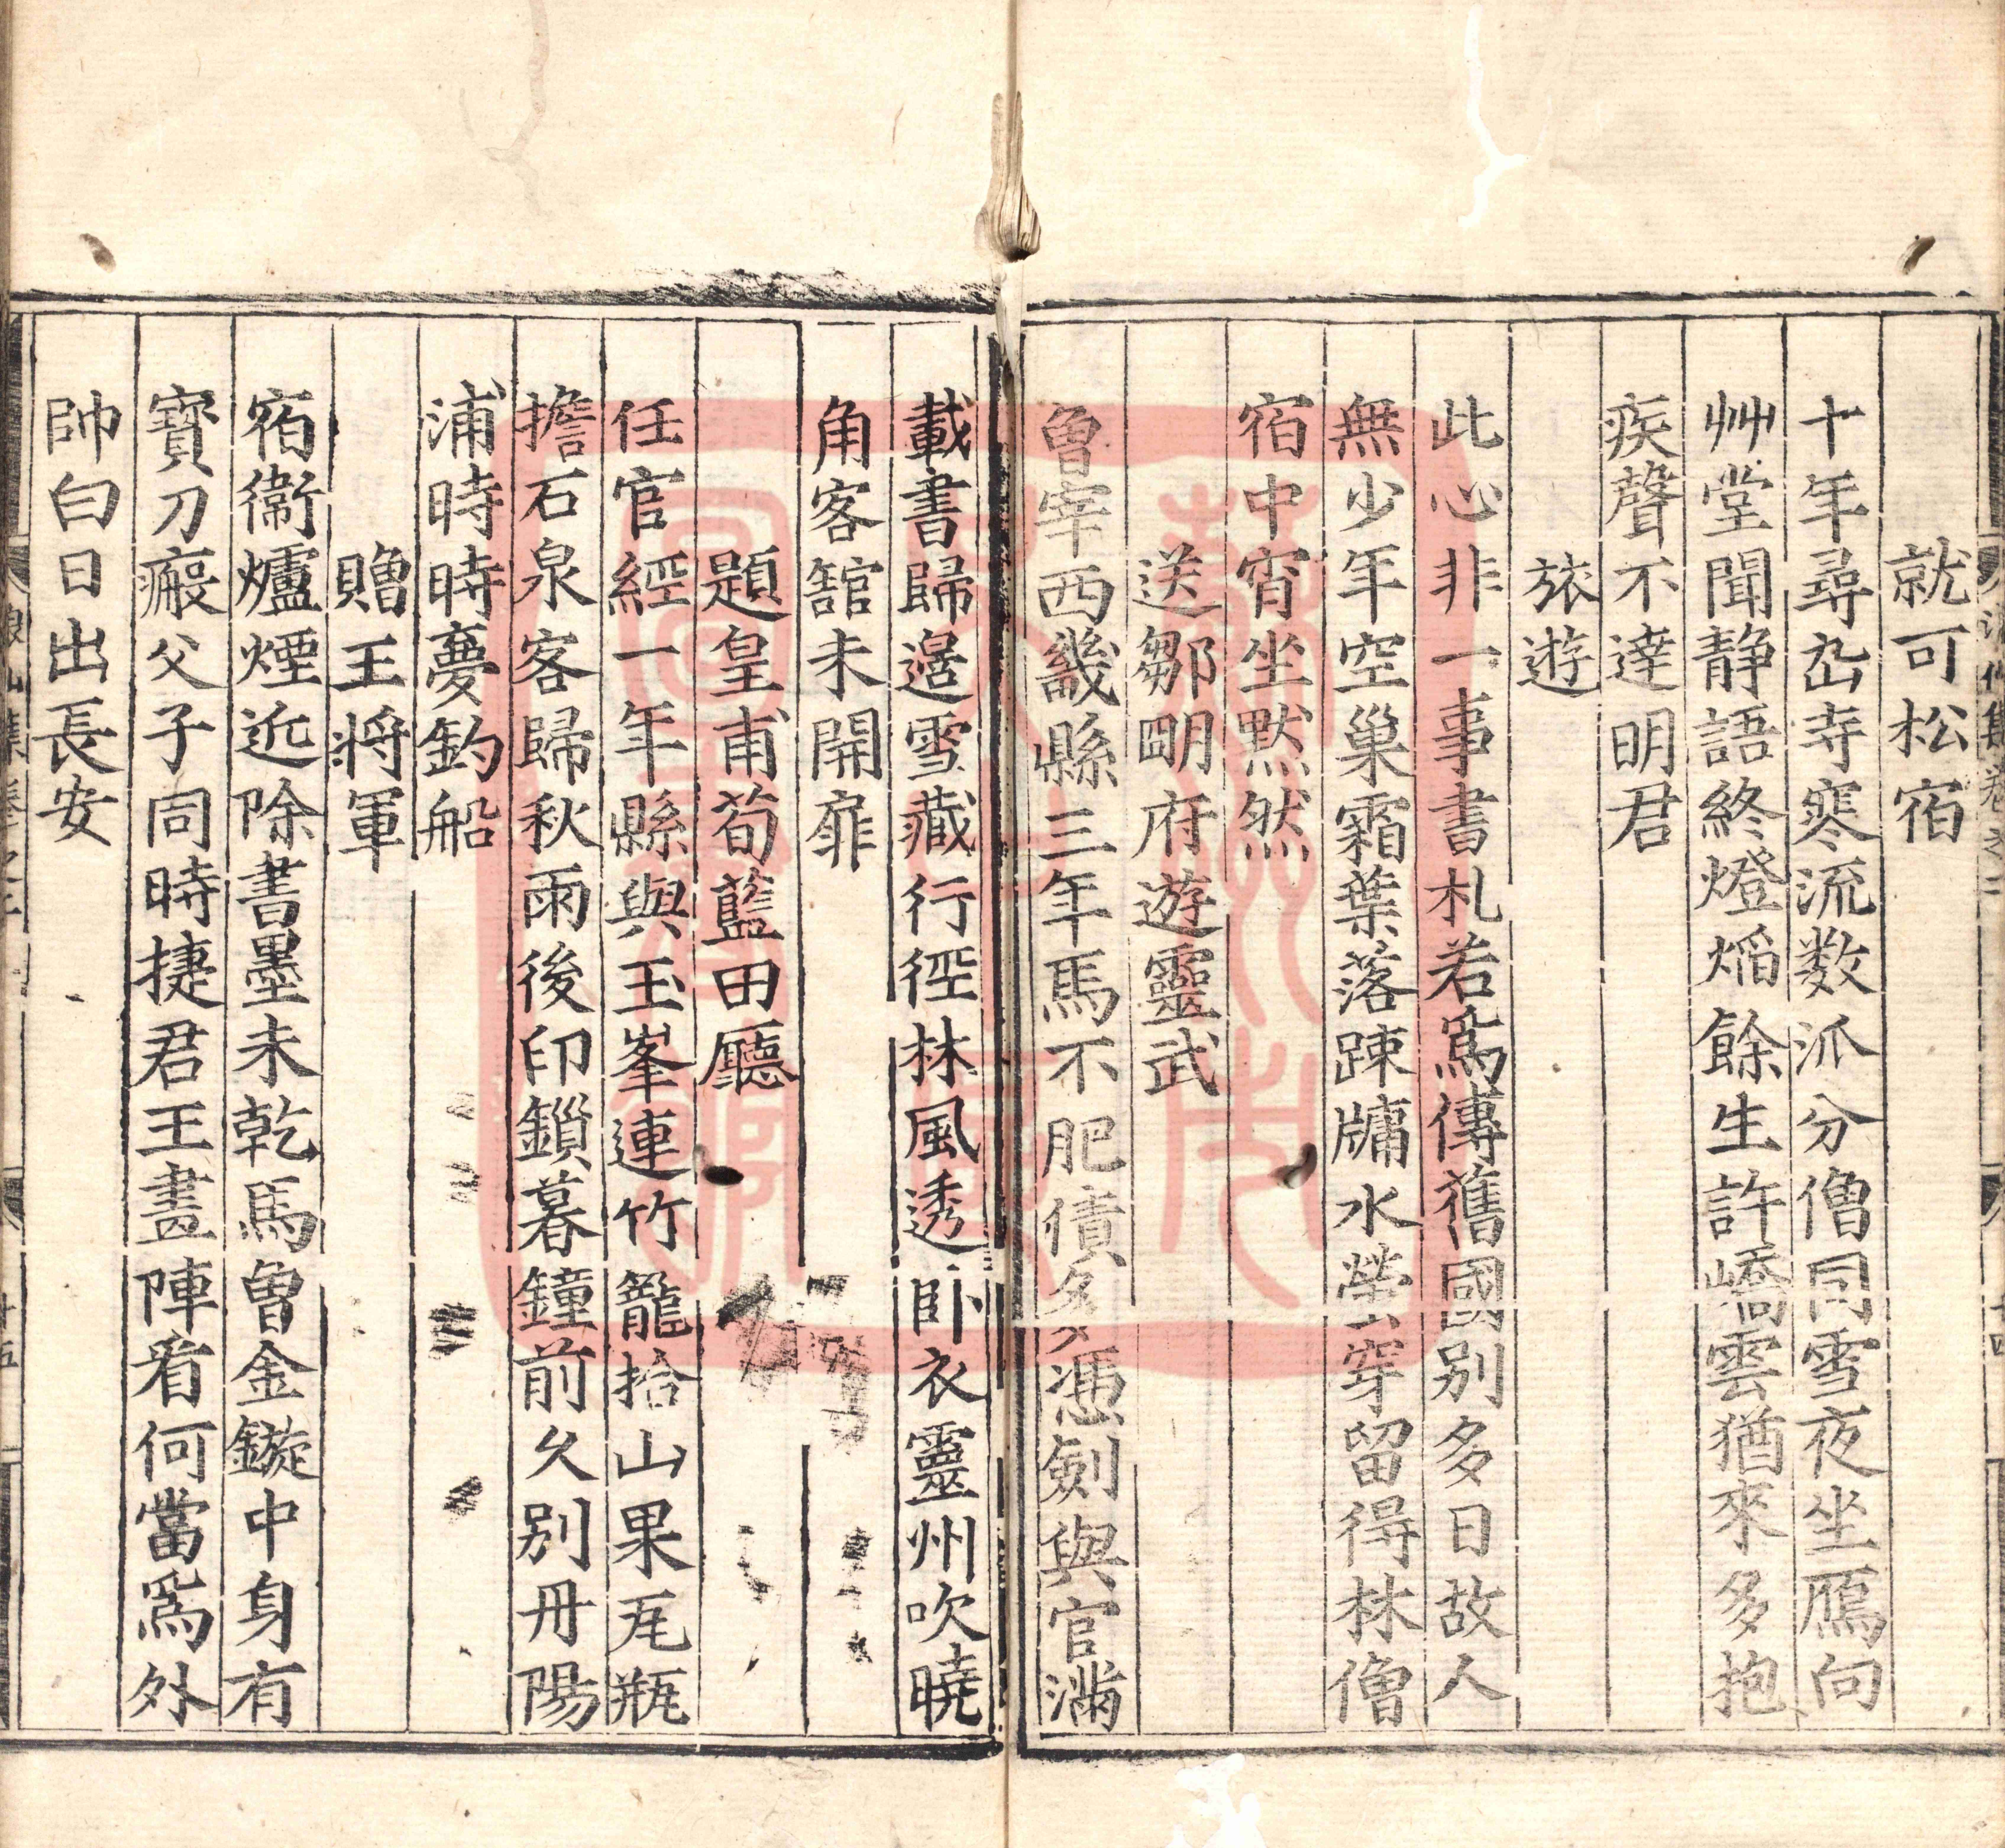 就可松宿
十年尋岳寺寒流数派分僧同雪夜坐鴈向
艸堂聞静語終燈焰餘生許嶠雲猶來多抱
疾聲不達明君
旅遊
此心非一事書札若爲傳舊國别多日故人
無少年空巢霜葉落踈牖水螢穿留得林僧
宿中宵坐默然
送鄒明府遊靈武
曾宰西畿縣三年馬不肥債多憑劍與官滿
載書歸邉雪藏行徑林風透卧衣靈州吹曉
角客舘未開扉
題皇甫荀藍田廳
任官經一年縣與玉峯連竹籠拾山果瓦瓶
擔石泉客歸秋雨後印鎻暮鐘前久别丹陽
浦時時夢釣船
贈王將軍
宿衞爐煙近除書墨未乾馬曾金鏃中身有
寶刀瘢父子同時捷君王畫陣看何當爲外
帥白日出長安